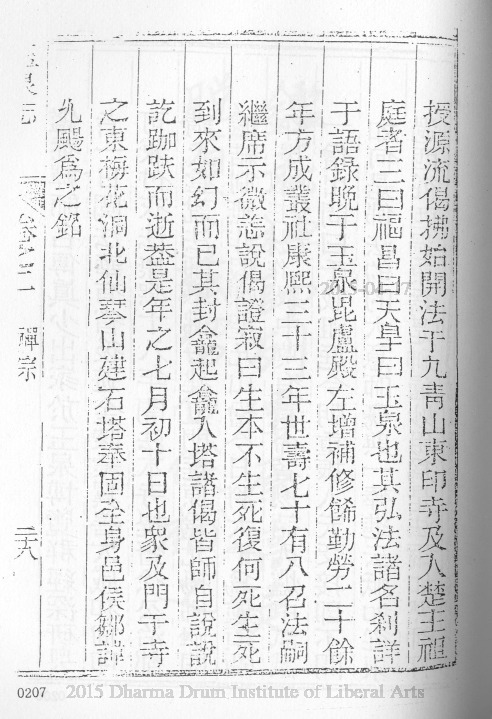 授源流偈拂始開法于九青山東印寺及入楚主祖
庭者三曰福昌曰天皇曰玉泉也其弘法諸名剎詳
于語錄晚于玉泉毘盧殿左增補修餙勤勞二十餘
年方成叢社康熙三十三年世壽七十有八召法嗣
繼席示微恙說偈證寂曰生本不生死復何死生死
到來如幻而已其封龕起龕入塔諸偈皆師自說說
訖跏趺而逝葢是年之七月初十日也衆及門于寺
之東梅花洞北仙琴山建石塔奉固全身邑侯鄒諱
允颺爲之銘
玉泉志
卷之二
禪宗
二十八
0207
2015 Dharma Drum Institute of Liberal Arts